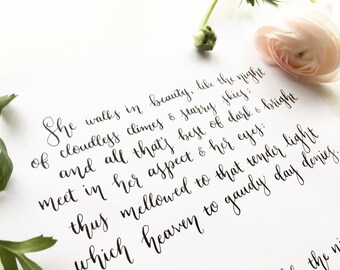 She walks in beauty, like the night
of cloudless climes & starry skies;
and all that's best of dark & bright
meet in her aspect & her eyes:
thus mellowed to that tender light
which heaven to gaudy day denies.
the ni